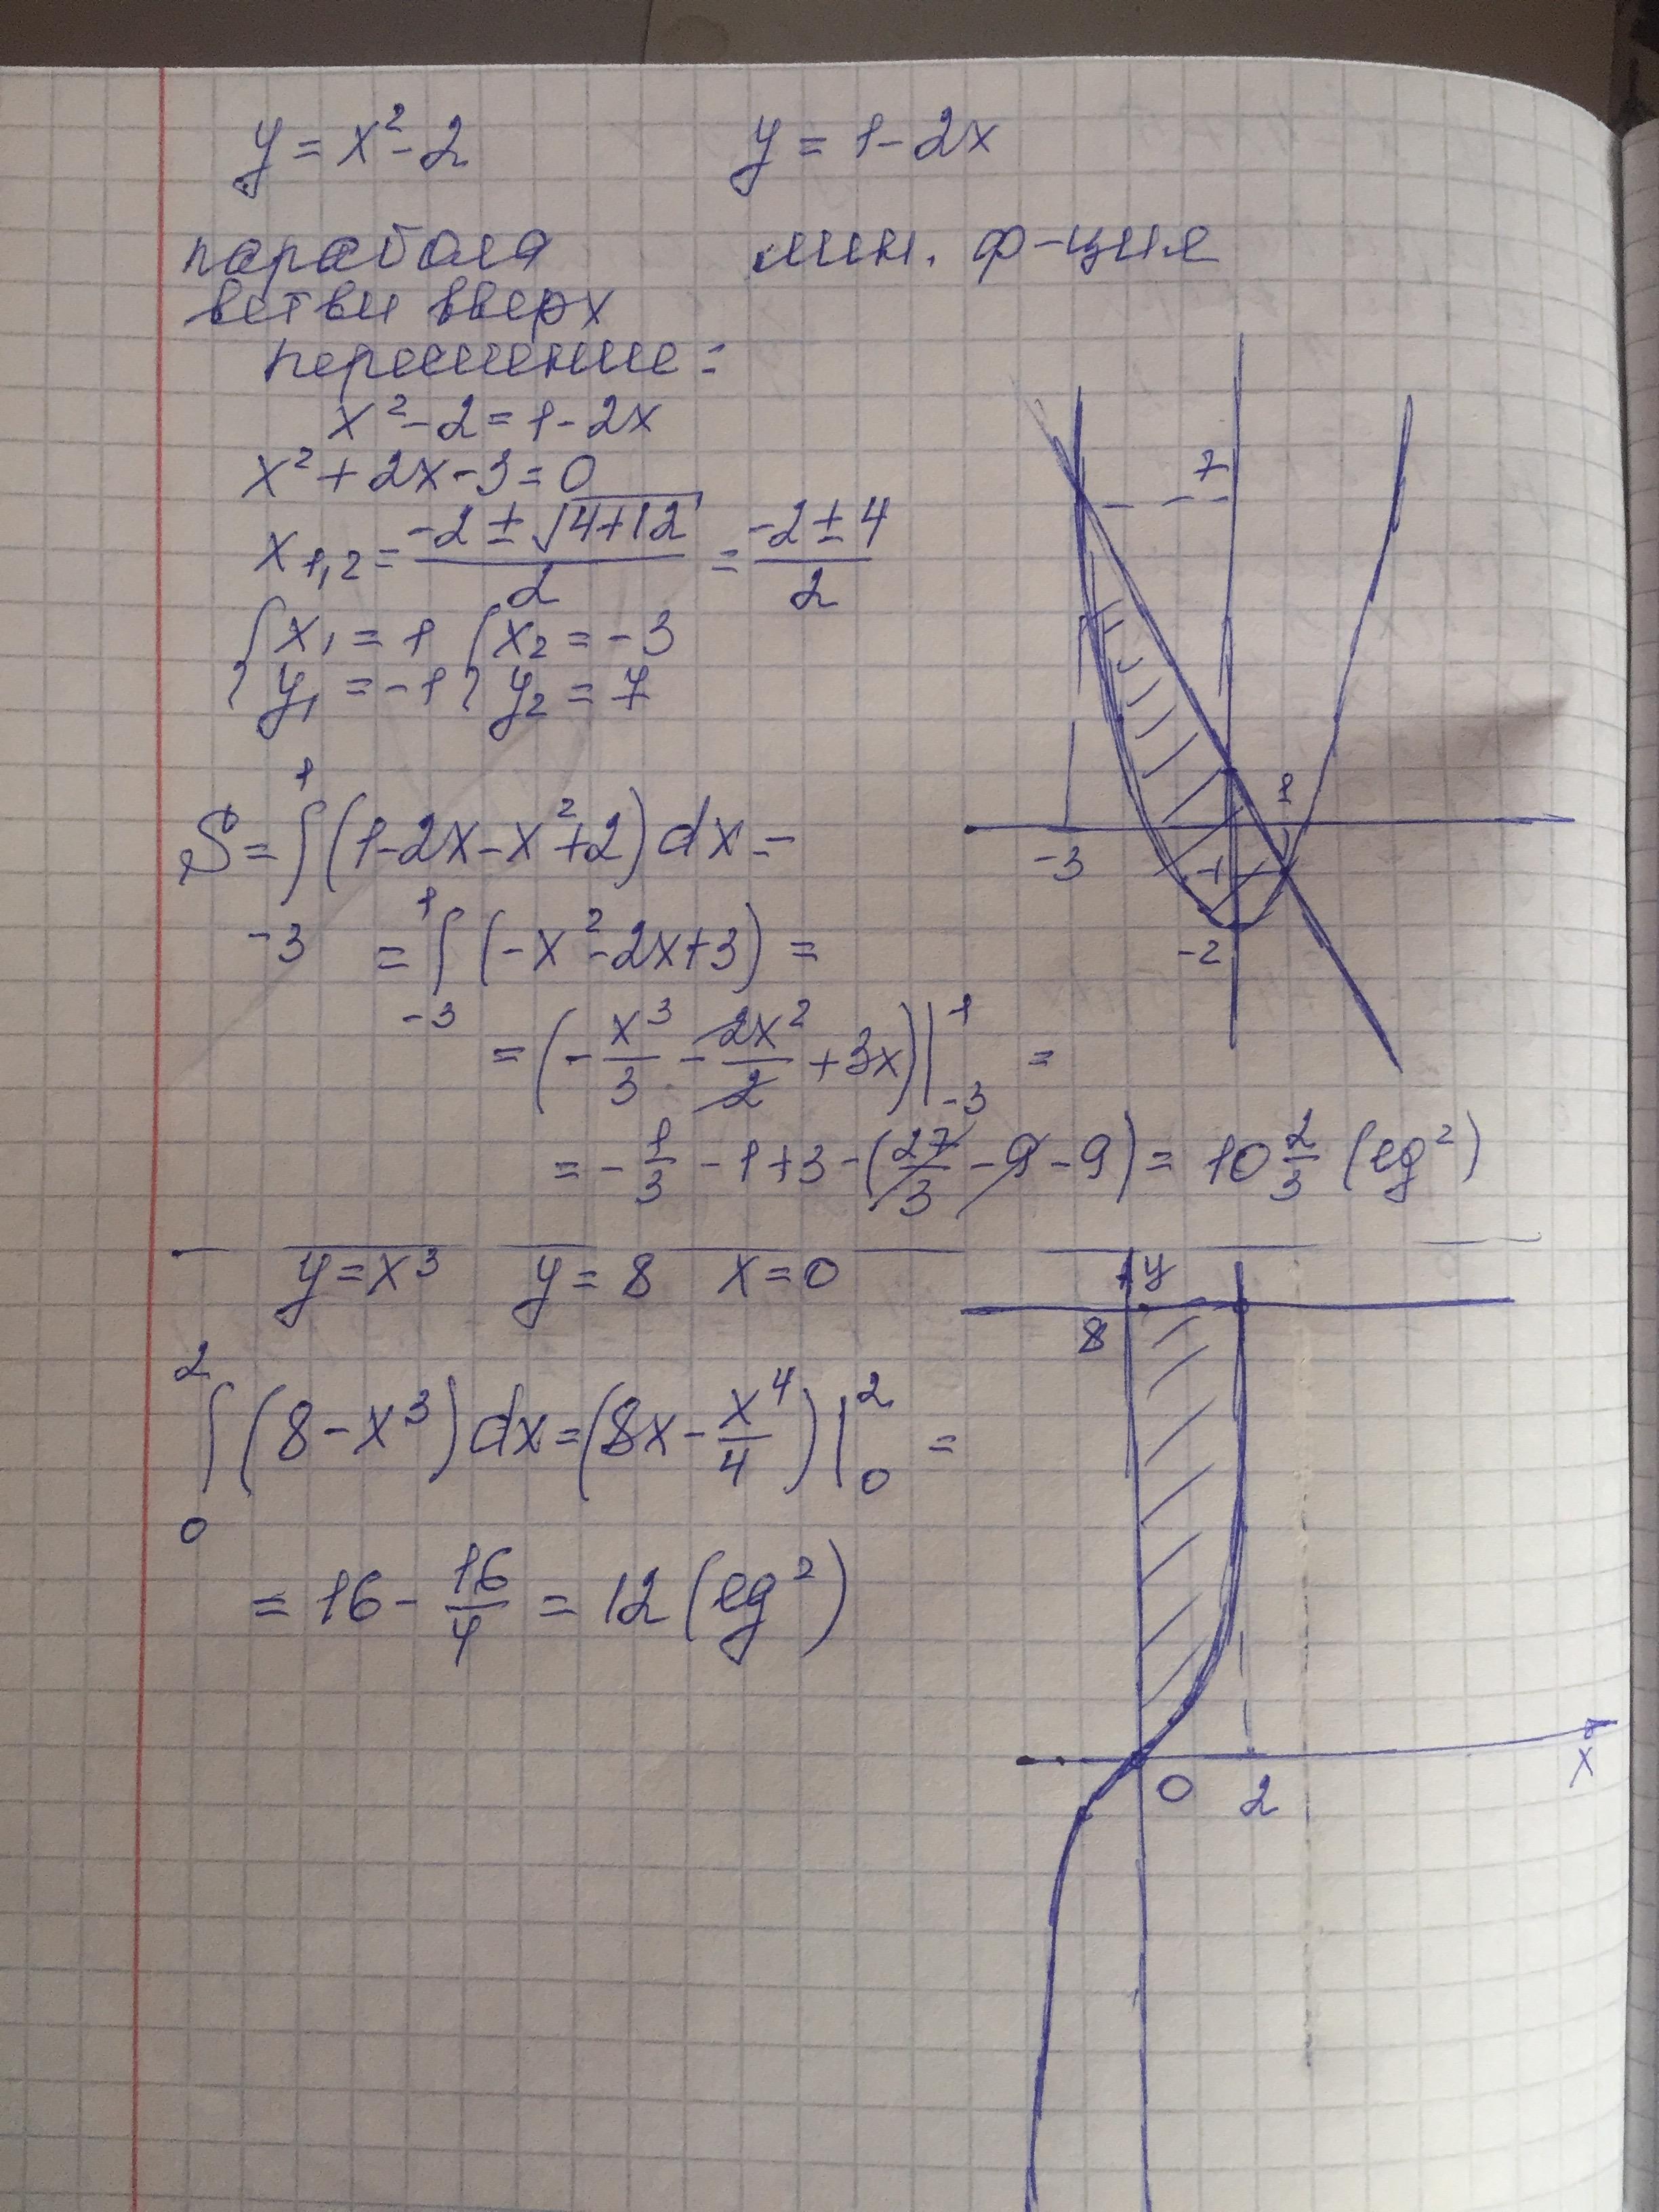 y = x² - 2    y = 1 - 2x
парабола    лин. ф-ция
ветви вверх
пересечение:
x² - 2 = 1 - 2x
x² + 2x - 3 = 0
x₁,₂ = (-2 ± √(4+12))/2 = (-2 ± 4)/2
{x₁ = 1  {x₂ = -3
{y₁ = -1  {y₂ = 7
S = ∫₋₃¹ (1 - 2x - x² + 2) dx =
= ∫₋₃¹ (-x² - 2x + 3) =
= (-x³/3 - 2x²/2 + 3x)|₋₃¹ =
= -1/3 - 1 + 3 - (27/3 - 9 - 9) = 10 2/3 (ед²)
7
1
-3
-1
-2
y = x³    y = 8    x = 0
∫₀² (8 - x³) dx = (8x - x⁴/4)|₀² =
= 16 - 16/4 = 12 (ед²)
y
8
0
2
x